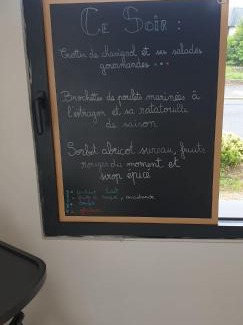 Ce Soir :
Crottin de chavignol et ses salades
gourmandes ...
Brochettes de poulets marinées à
l'estragon et sa ratatouille
de saison
Sorbet abricot sureau, fruits
rouges du moment et
sirop épicé